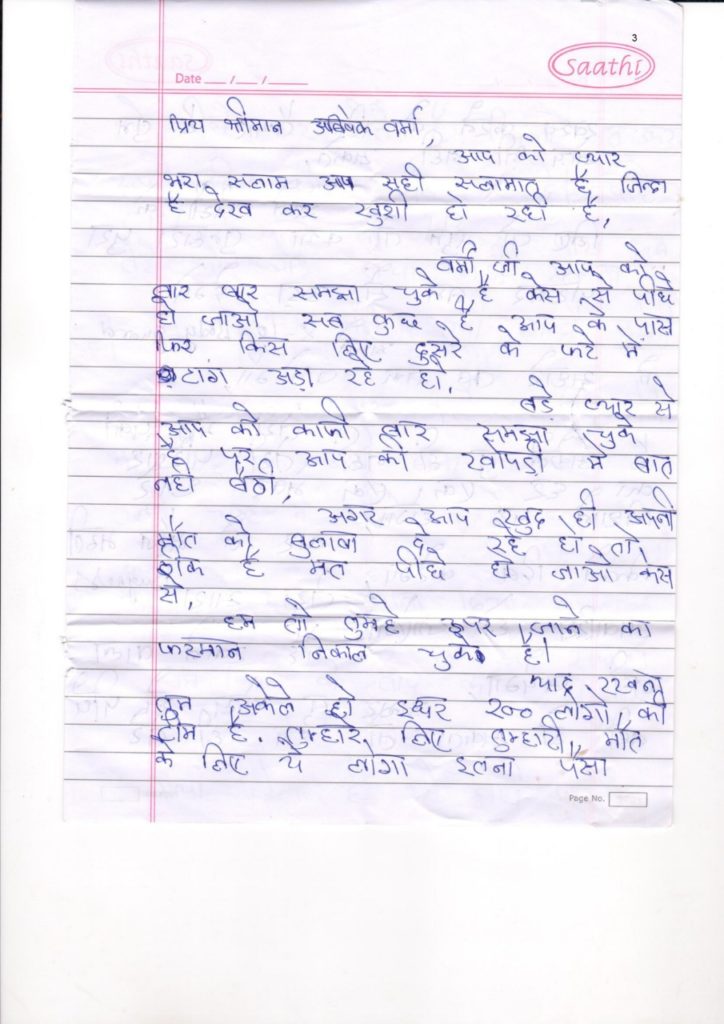 3
Saathi
Date __/__/____
प्रिय श्रीमान अभिषेक वर्मा,
आप को प्यार
भरा सलाम आप सही सलामात है, जिन्दा
है देख कर खुशी हो रही है,
वर्मा जी आप को
बार बार समझा चुके है केस से पीछे
हो जाओ सब कुछ है आप के पास
फिर किस लिए दुसरे के फटे में
टांग अड़ा रहे हो.
बड़े प्यार से
आप को काफी बार समझा चुके
है पर आप की खोपड़ी मे बात
नही बैठी,
अगर आप खुद ही अपनी
मौत को बुलावा दे रहे हो तो
ठीक है मत पीछे हो जाओ केस
से,
हम तो तुम्हे उपर जाने का
फरमान निकाल चुके है।
याद रखना
तुम अकेले हो इधर २०० लोगो की
टीम है. तुम्हारे लिए तुम्हारी मौत
के लिए ये लोगा इतना पैसा
Page No.